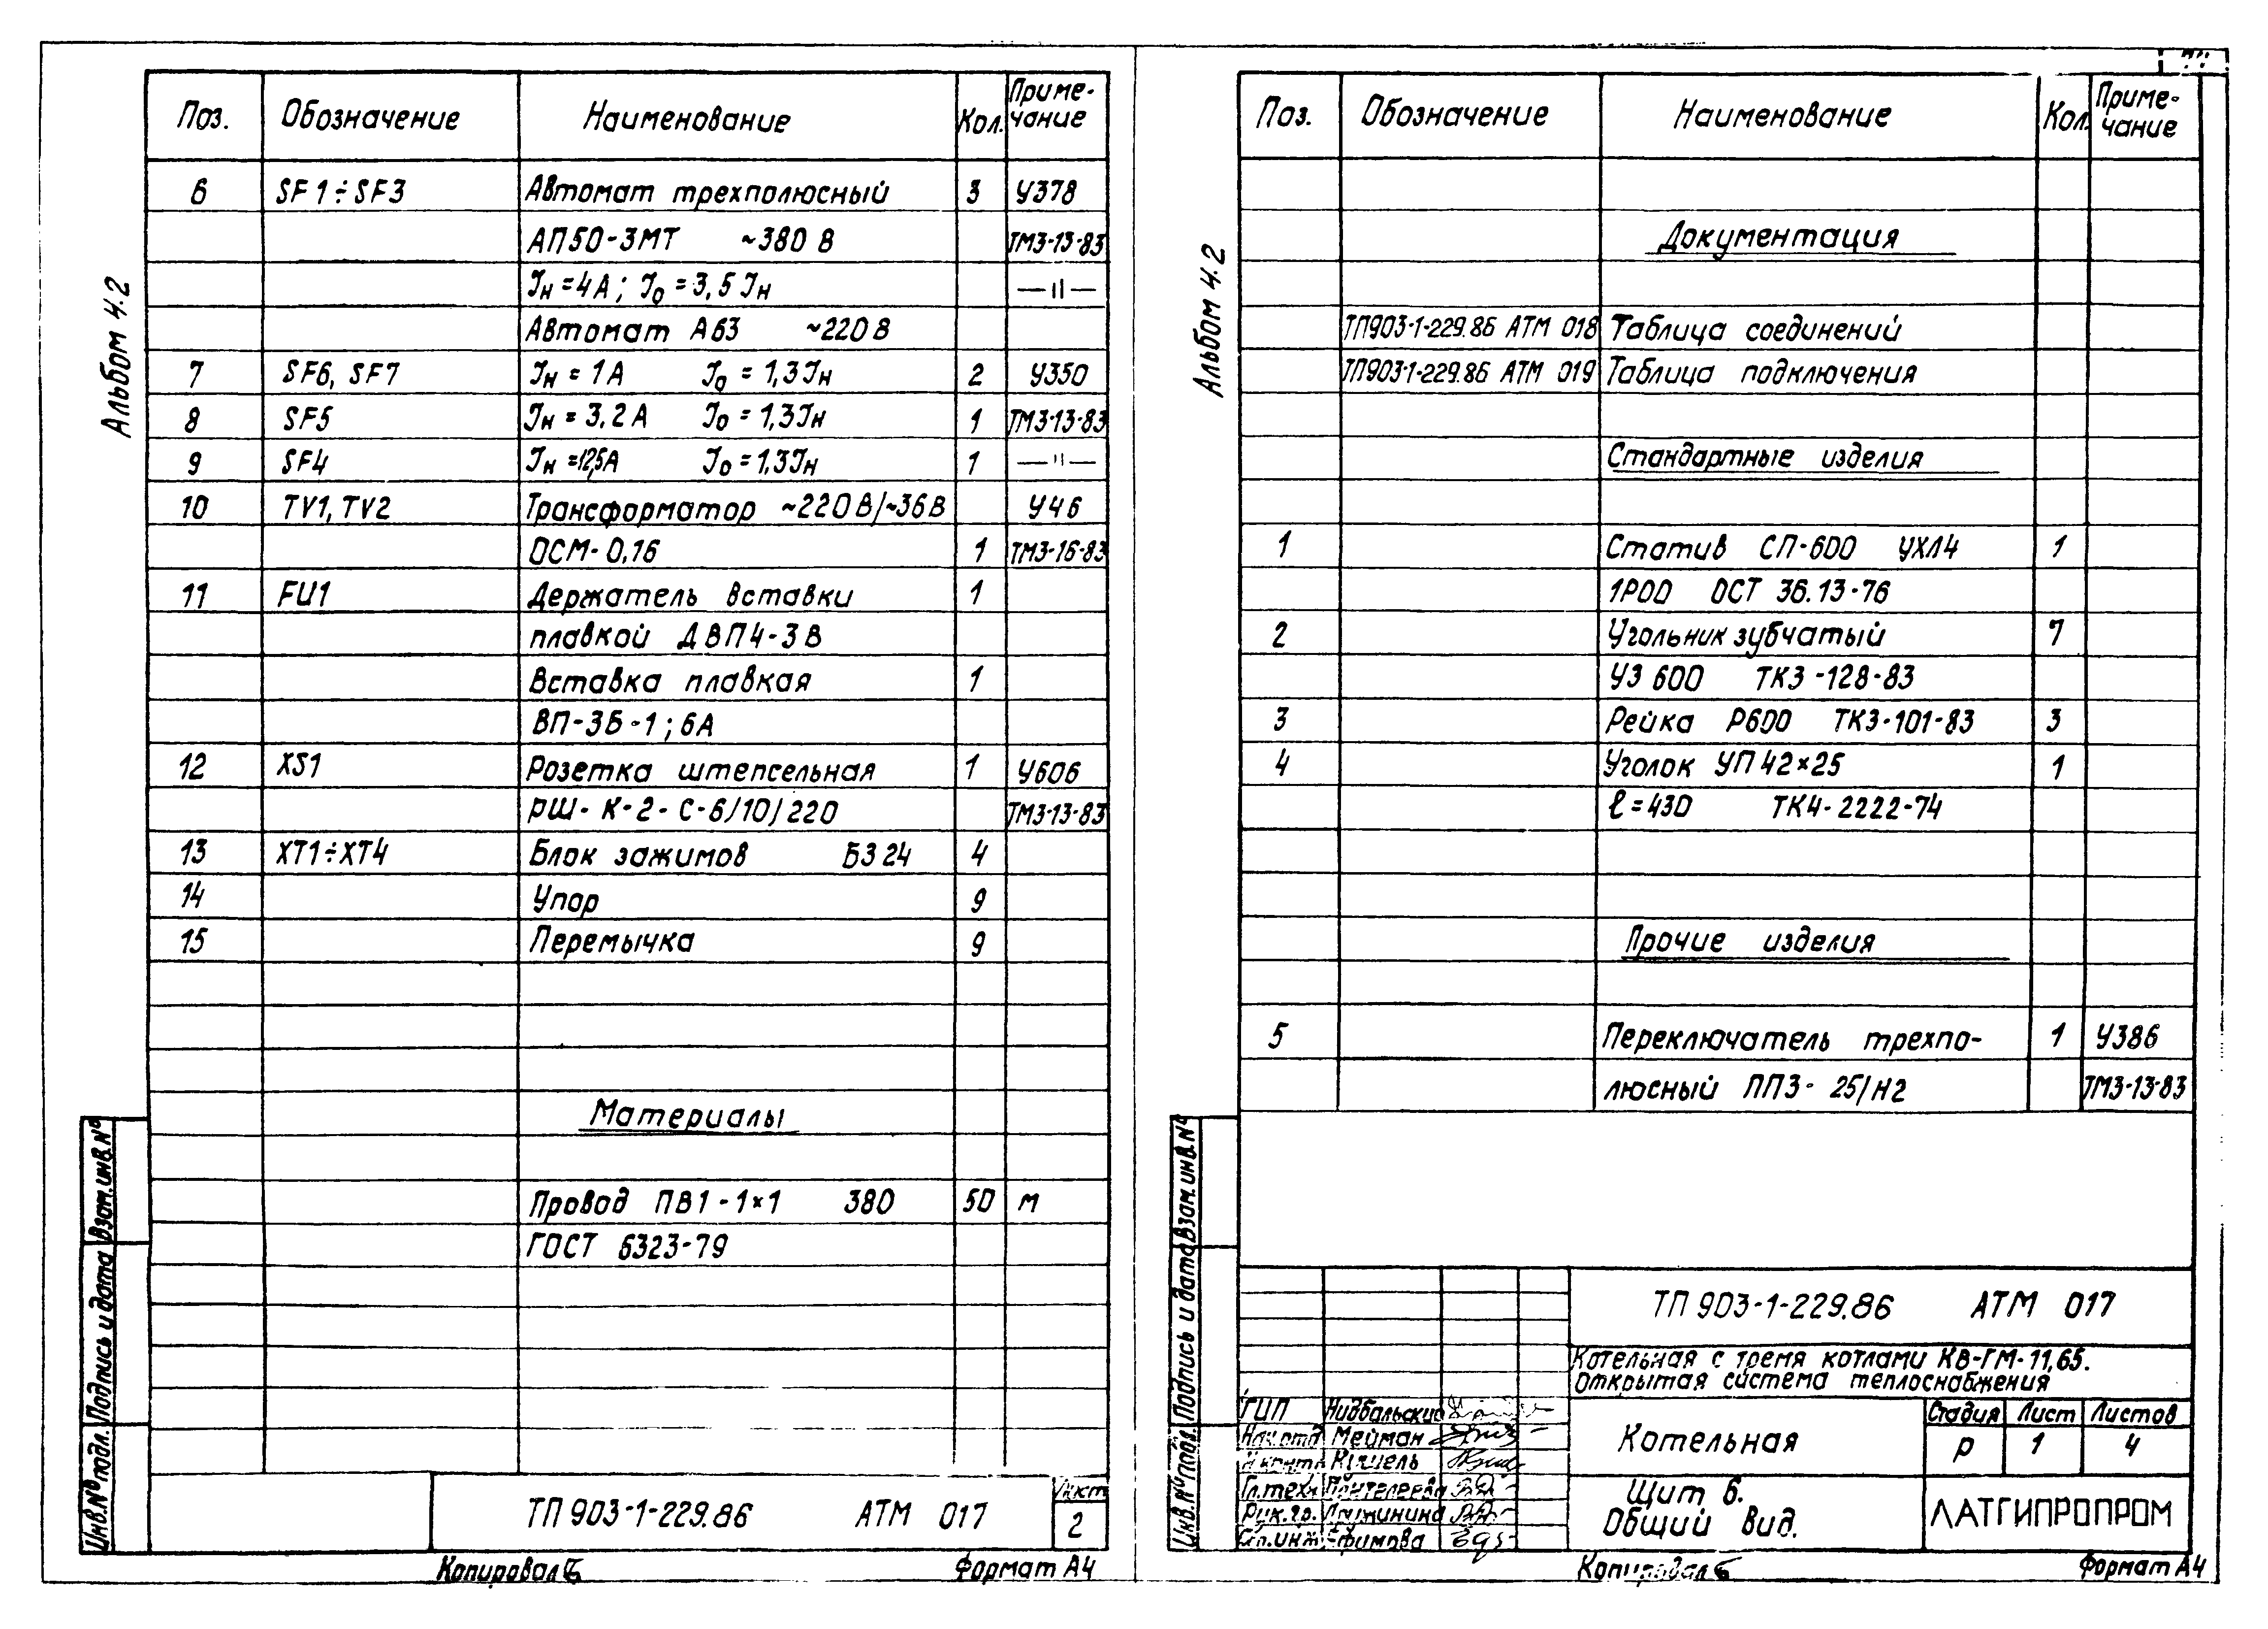 Альбом 4.2
Поз. Обозначение Наименование Кол. Приме-
чание
6 SF1÷SF3 Автомат трехполюсный 3 У378
АП50-3МТ ~380 В ТМ3-13-83
Iн =4А; Io =3,5 Iн —〃—
Автомат А63 ~220 В
7 SF6, SF7 Iн = 1А Io = 1,3 Iн 2 У350
8 SF5 Iн = 3,2 А Io = 1,3 Iн 1 ТМ3-13-83
9 SF4 Iн =12,5А Io = 1,3 Iн 1 —〃—
10 TV1, TV2 Трансформатор ~220 В/~36 В У46
ОСМ-0,16 1 ТМ3-16-83
11 FU1 Держатель вставки 1
плавкой ДВП4-3 В
Вставка плавкая 1
ВП-3Б-1; 6А
12 XS1 Розетка штепсельная 1 У606
РШ-К-2-С-6/10/220 ТМ3-13-83
13 XT1÷XT4 Блок зажимов БЗ 24 4
14 Упор 9
15 Перемычка 9
Материалы
Провод ПВ1-1×1 380 50 м
ГОСТ 6323-79
Взам.инв.№
Подпись и дата
Инв.№ подл.
ТП 903-1-229.86 АТМ 017
Лист
2
Копировал
Формат А4
Альбом 4.2
Поз. Обозначение Наименование Кол. Приме-
чание
Документация
ТП903-1-229.86 АТМ 018 Таблица соединений
ТП903-1-229.86 АТМ 019 Таблица подключения
Стандартные изделия
1 Статив СП-600 УХЛ4 1
1Р00 ОСТ 36.13-76
2 Угольник зубчатый 7
УЗ 600 ТК3-128-83
3 Рейка Р600 ТК3-101-83 3
4 Уголок УП 42×25 1
ℓ=430 ТК4-2222-74
Прочие изделия
5 Переключатель трехпо- 1 У386
люсный ПП3-25/Н2 ТМ3-13-83
Взам.инв.№
Подпись и дата
Инв.№ подл.
ТП 903-1-229.86 АТМ 017
Котельная с тремя котлами КВ-ГМ-11,65.
Открытая система теплоснабжения
ГИП Нидбальский
Нач.отд Мейман
Н.контр
Гл.техн Пантелеева
Рук.гр.
Ст.инж Ефимова
Котельная
Стадия Лист Листов
Р 1 4
Щит 6.
Общий вид.
ЛАТГИПРОПРОМ
Копировал
Формат А4